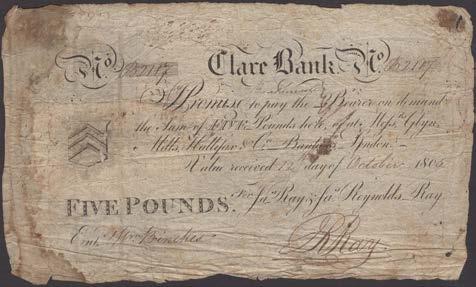 Nº B2117 Clare Bank. Nº B2117
I Promise to pay the Bearer on demand
the Sum of FIVE Pounds here, or at Messrs Glyn,
Mills, Hallifax & Co Bankers London.
Value received 12 day of October 1805
For Jas Ray & Jas Reynolds Ray
FIVE POUNDS.
Entd Wm
JR Ray